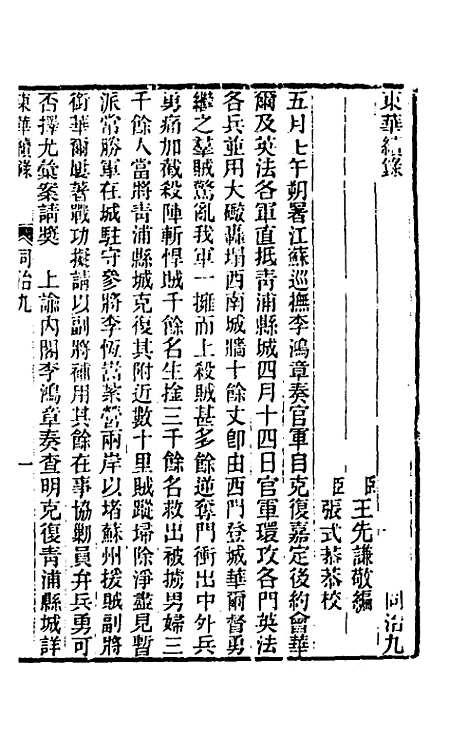 東華續錄
同治九
臣王先謙敬編
臣張式恭恭校
五月戊午朔署江蘇巡撫李鴻章奏官軍自克復嘉定後約會華
爾及英法各軍直抵靑浦縣城四月十四日官軍環攻各門英法
各兵並用大礮轟塌西南城牆十餘丈卽由西門登城華爾督勇
繼之羣賊驚亂我軍一擁而上殺賊甚多餘逆奪門衝出中外兵
勇痛加截殺陣斬悍賊千餘名生擒三千餘名救出被擄男婦三
千餘人當將靑浦縣城克復其附近數十里賊蹤埽除淨盡見暫
派常勝軍在城駐守參將李恆嵩紮營兩岸以堵蘇州援賊副將
銜華爾歷著戰功擬請以副將補用其餘在事協勦員弁兵勇可
否擇尤彙案請獎 上諭內閣李鴻章奏查明克復靑浦縣城詳
東華續錄
同治九
一